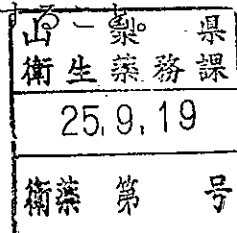 山梨県
衛生薬務課
25.9.19
衛薬 第 号